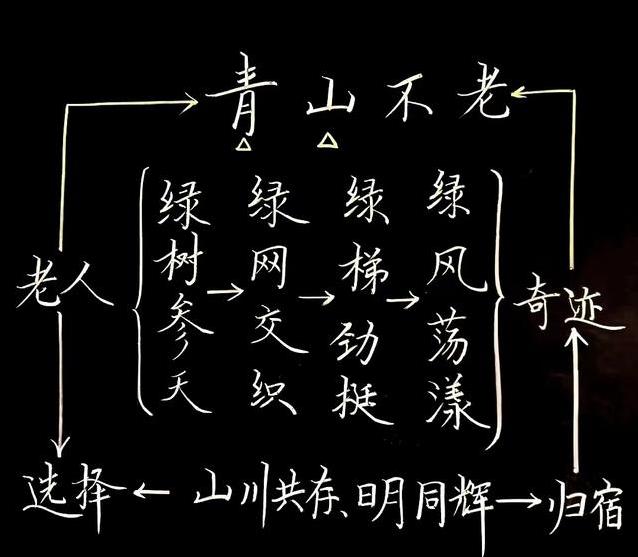 青山不老
老人
绿树参天
绿网交织
绿梯劲挺
绿风荡漾
奇迹
选择
山川共存、日月同辉
归宿